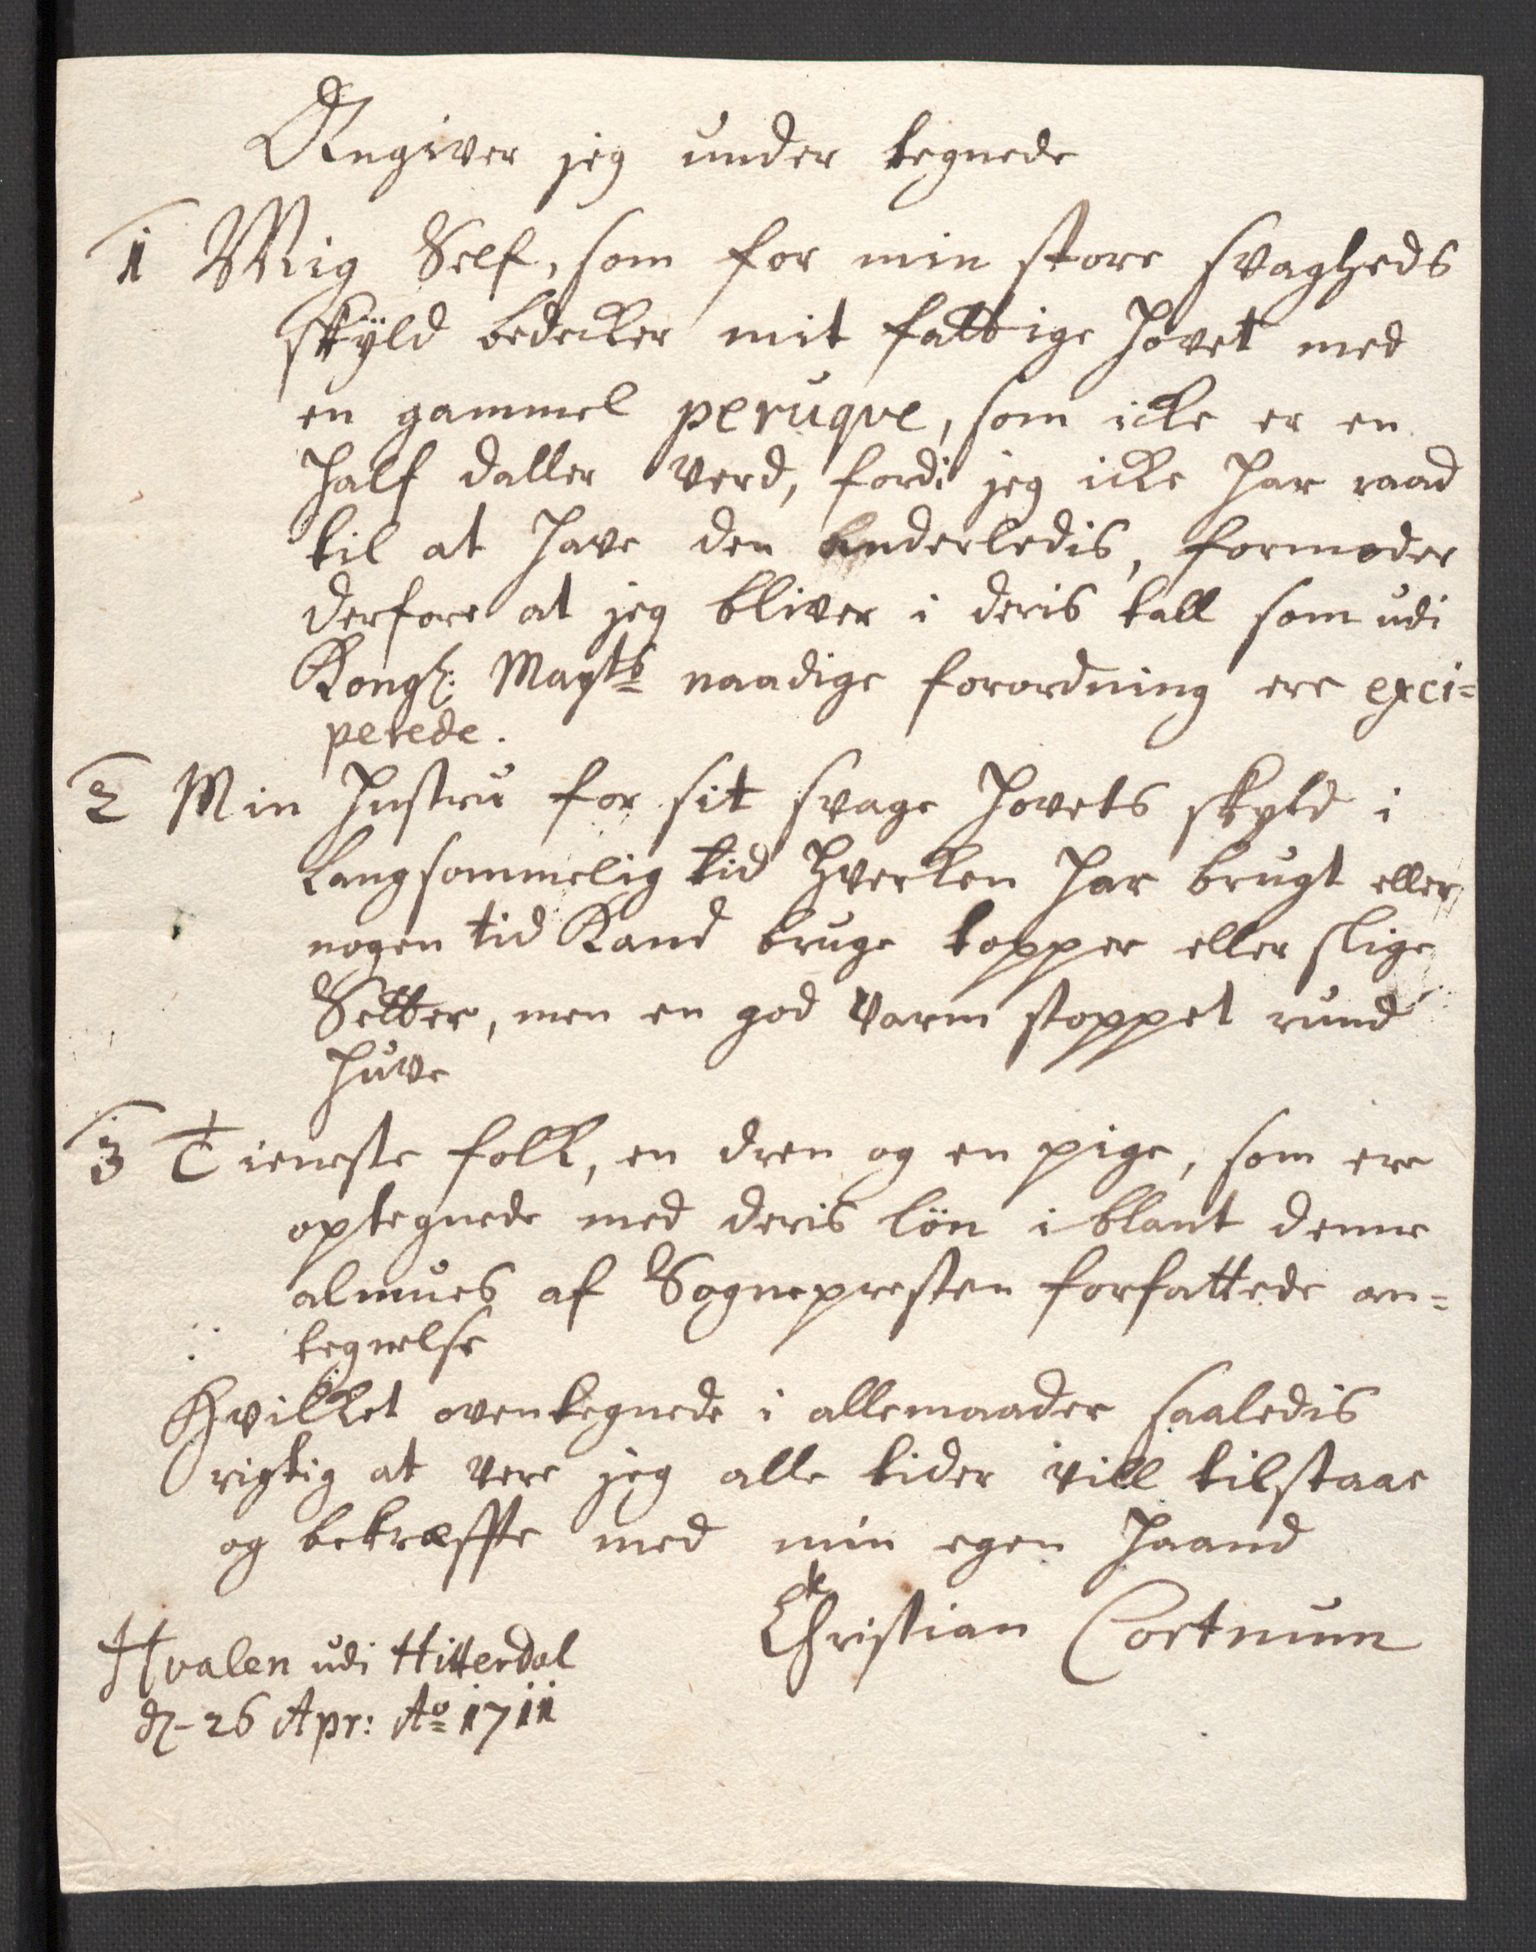 Angiver jeg under tegnede
1 Mig Self, som for min store svagheds
skÿld bedecker mit fattige hovet med
en gammel peruqve, som icke er en
half daller verd, fordi jeg icke har raad
til at have den anderledis, formoder
derfore at jeg bliver i deris tall som udi
Kongl: Maÿts naadige forordning ere exci=
perede.
2 Min hustru for sit svage hovets skyld i
langsommelig tid hverken har brugt eller
nogen tid kand bruge topper eller slige
Setter, men en god varm stoppet rund
huve
3 Tieneste folk, en dren og en pige, som ere
optegnede med deris lön iblant denne
almues af Sognepresten forfattede an=
tegnelse
Hvilket oventegnede i allemaader saaledis
rigtig at vere jeg alle tider vill tilstaae
og bekræffte med min egen haand
Christian Cortnum
Hvalen udi Hitterdal
d. 26 Apr: Ao 1711